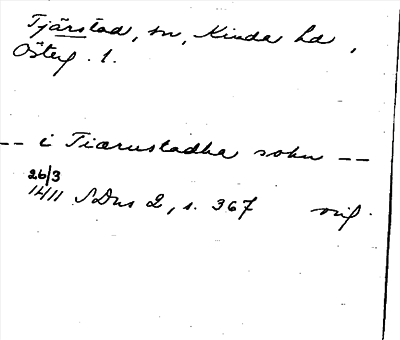 Tjärstad, sn, Kinda hd,
Österg. l.
-- i Tiærnstadha sokn --
26/3
1411 SDns 2, s. 367 orig.